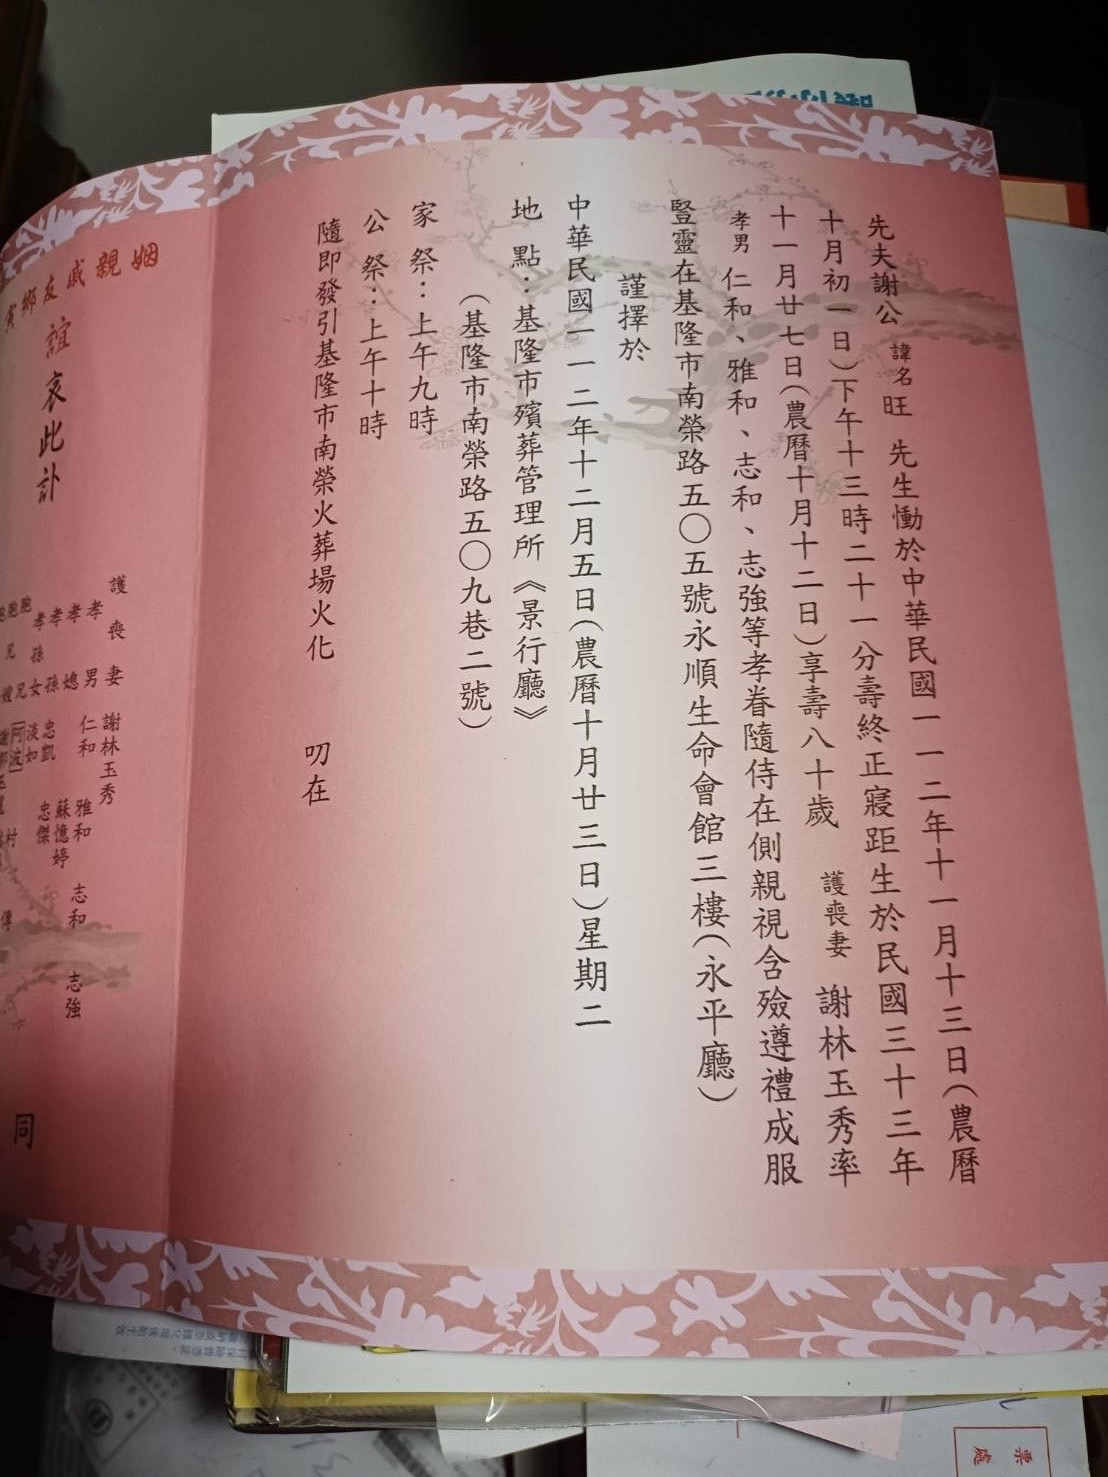 先夫謝公 諱名 旺 先生慟於中華民國一一二年十一月十三日(農曆
十月初一日)下午十三時二十一分壽終正寢距生於民國三十三年
十一月廿七日(農曆十月十二日)享壽八十歲 護喪妻 謝林玉秀率
孝男 仁和、雅和、志和、志強等孝眷隨侍在側親視含殮遵禮成服
豎靈在基隆市南榮路五〇五號永順生命會館三樓(永平廳)
謹擇於
中華民國一一二年十二月五日(農曆十月廿三日)星期二
地 點:基隆市殯葬管理所《景行廳》
(基隆市南榮路五〇九巷二號)
家 祭:上午九時
公 祭:上午十時
隨即發引基隆市南榮火葬場火化 叨在
姻親戚友鄉寅
誼 哀此訃
護喪妻 謝林玉秀
孝男 仁和 雅和 志和 志強
孝媳 蘇憶婷
孝孫 忠凱 忠傑
孝孫女 淡如
胞兄 阿波
同
票處